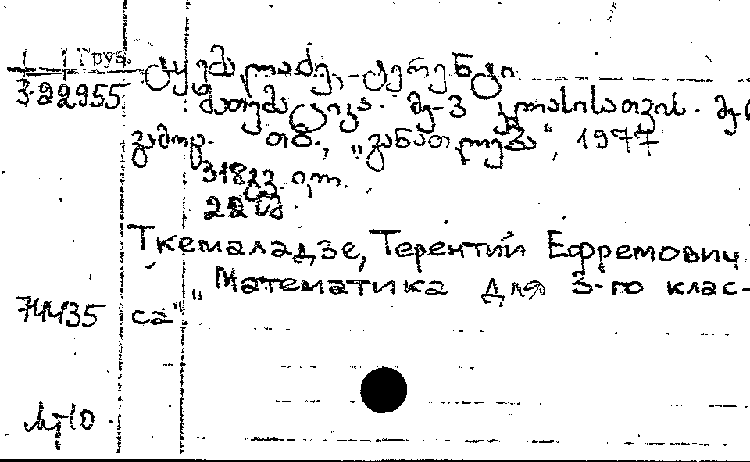 Груз.
ტყემალაძე, ტერენტი
3-22955 მათემატიკა. მე-3 კლასისათვის. მე-
გამოც. თბ., „განათლება", 1977
318გვ. ილ.
22სმ
Ткемаладзе, Терентий Ефремович
„Математика для 3-го клас-
74435 са"